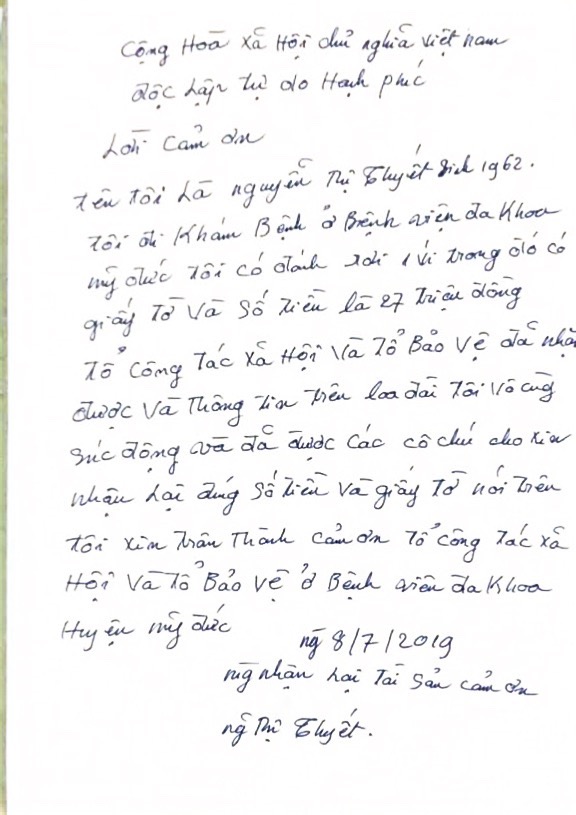 Cộng Hoà Xã Hội chủ nghĩa Việt nam
độc Lập Tự do Hạnh phúc
Lời Cảm ơn
Tên Tôi Là nguyễn Thị Thuyết Sinh 1962.
Tôi đi Khám Bệnh ở Bệnh viện đa Khoa
mỹ đức Tôi có đánh rơi 1 ví trong đó có
giấy Tờ Và Số Tiền là 27 Triệu đồng
Tổ Công Tác Xã Hội Và Tổ Bảo Vệ đã nhặt
được Và Thông tin Trên loa đài Tôi Vô cùng
súc động và đã được Các cô chú cho xin
nhận Lại đúng Số Tiền Và giấy Tờ nói Trên
Tôi xin Trân Thành cảm ơn Tổ công Tác Xã
Hội Và Tổ Bảo Vệ ở Bệnh viện đa Khoa
Huyện mỹ đức
ng 8/7/2019
ng nhận Lại Tài Sản cảm ơn
ng Thị Thuyết.